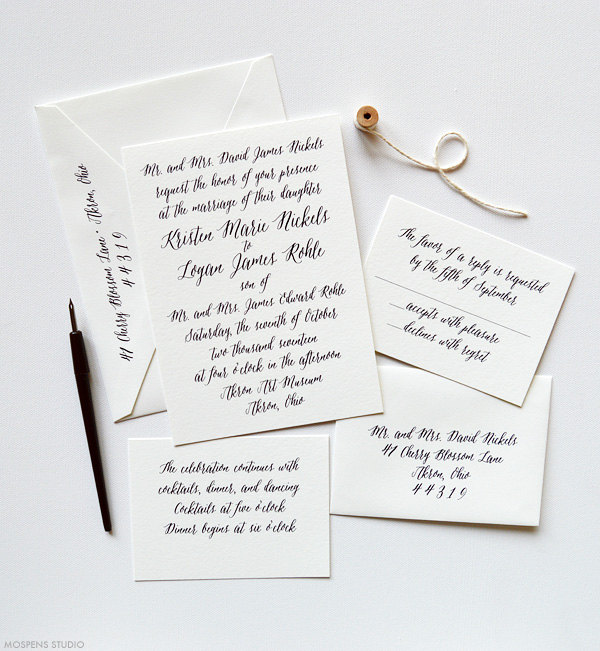 41 Cherry Blossom Lane · Akron, Ohio
44319
Mr. and Mrs. David James Nickels
request the honor of your presence
at the marriage of their daughter
Kristen Marie Nickels
to
Logan James Rohle
son of
Mr. and Mrs. James Edward Rohle
Saturday, the seventh of October
two thousand seventeen
at four o'clock in the afternoon
Akron Art Museum
Akron, Ohio
The favor of a reply is requested
by the fifth of September
accepts with pleasure
declines with regret
Mr. and Mrs. David Nickels
41 Cherry Blossom Lane
Akron, Ohio
44319
The celebration continues with
cocktails, dinner, and dancing
Cocktails at five o'clock
Dinner begins at six o'clock
MOSPENS STUDIO